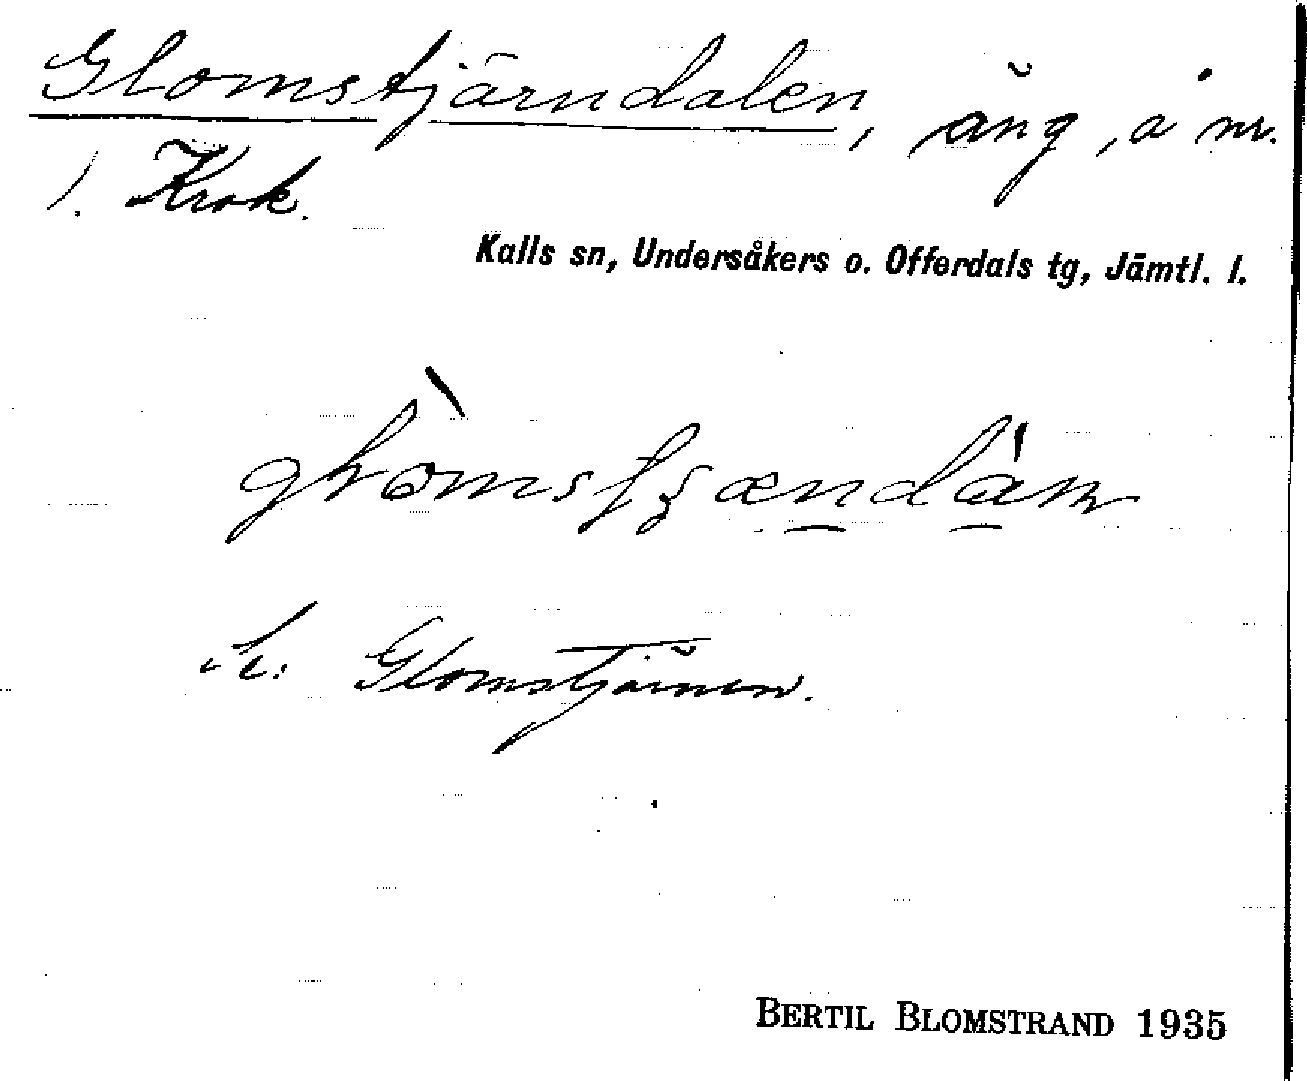 Glomstjärndalen, äng, å nr.
1. Krok.
Kalls sn, Undersåkers o. Offerdals tg, Jämtl. l.
Se: Glomstjärnen.
BERTIL BLOMSTRAND 1935